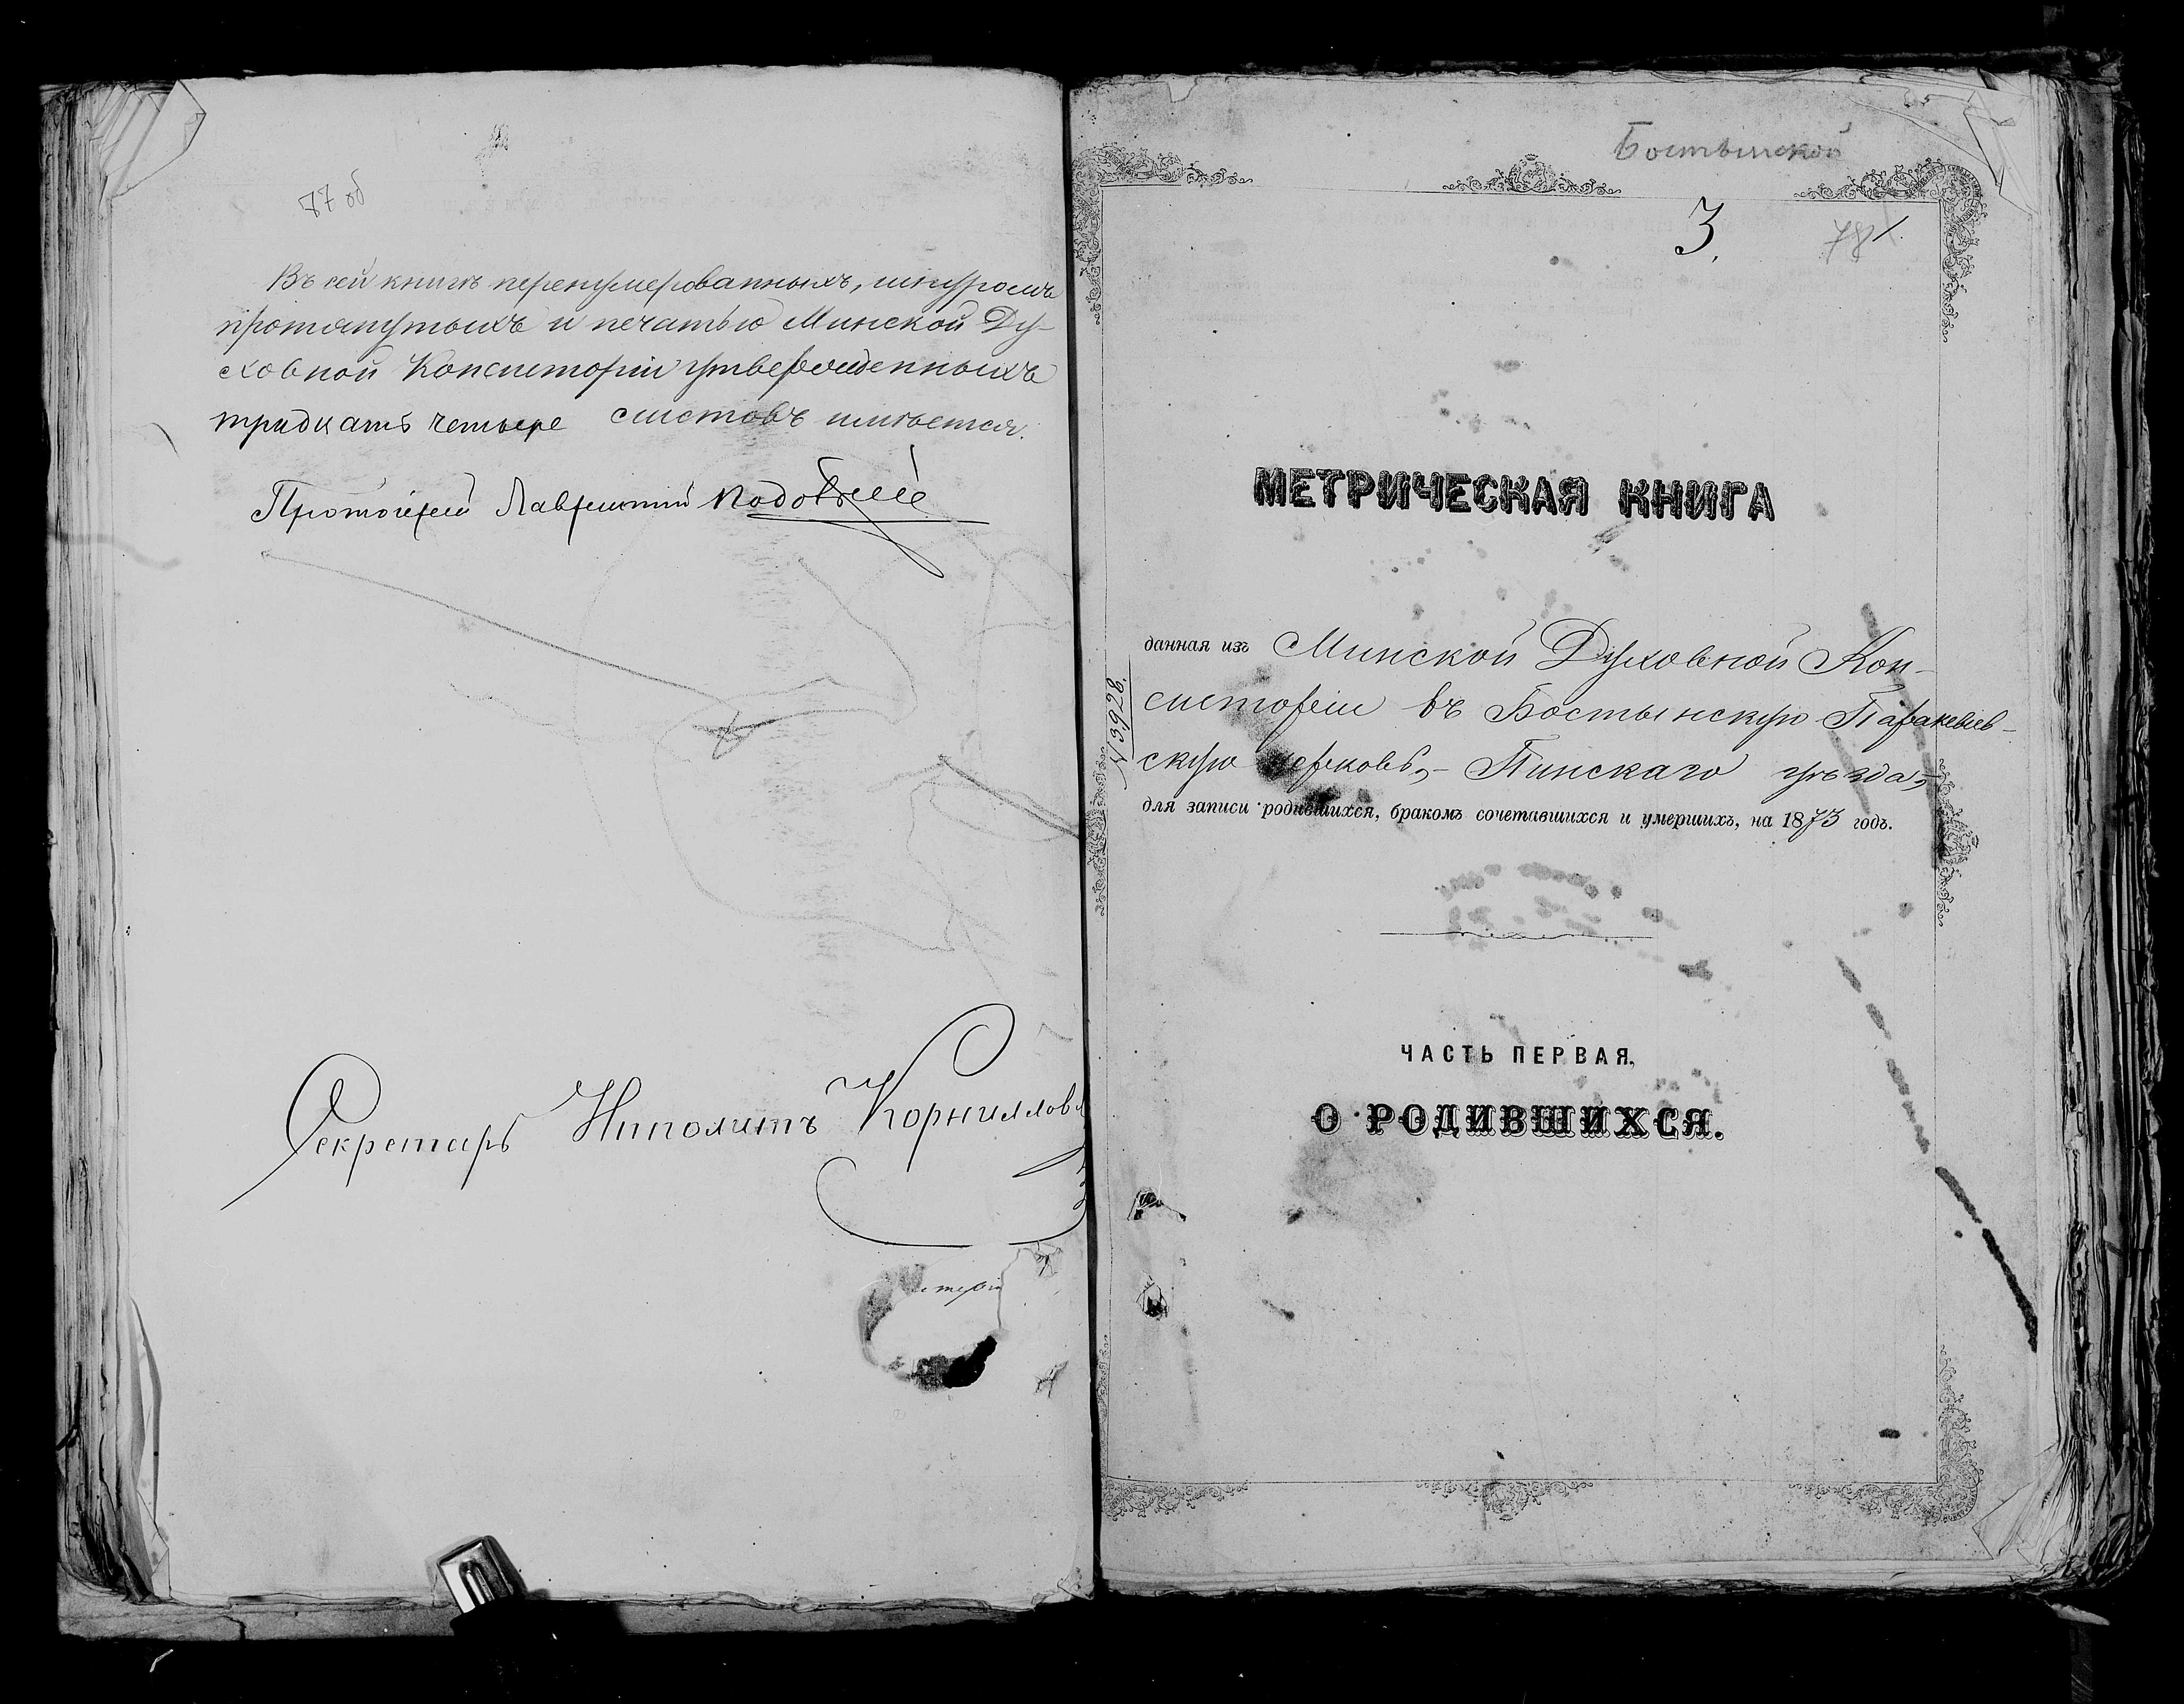 87 об
Въ сей книгѣ перенумерованныхъ, шнуромъ
протянутыхъ и печатью Минской Ду-
ховной Консисторіи утвержденныхъ
тридцать четыре листовъ имѣется.
Протоіерей Лаврентій
Секретарь Иполитъ Корниллов
Бостынской
3.
78
МЕТРИЧЕСКАЯ КНИГА
данная изъ Минской Духовной Кон-
систоріи въ Бостынскую Параскевіев-
скую церковь, Пинскаго уѣзда,
для записи родившихся, бракомъ сочетавшихся и умершихъ, на 1873 годъ.
№ 3928.
ЧАСТЬ ПЕРВАЯ,
О РОДИВШИХСЯ.